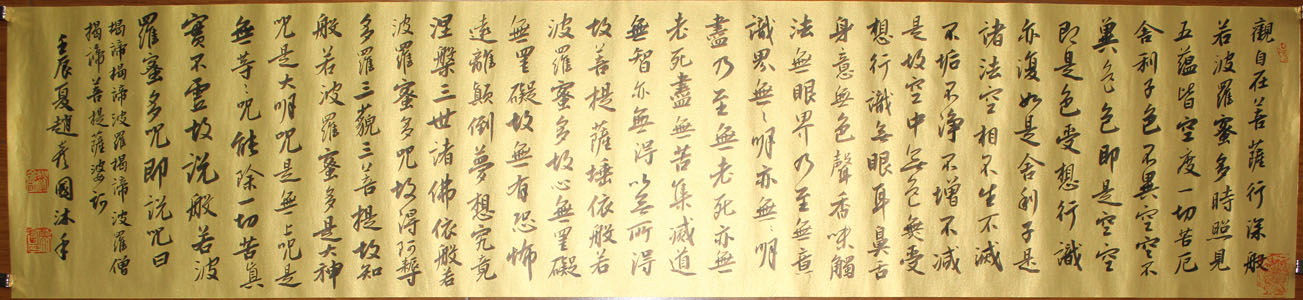 觀自在菩薩行深般
若波羅蜜多時照見
五蘊皆空度一切苦厄
舍利子色不異空空不
異色色即是空空
即是色受想行識
亦復如是舍利子是
諸法空相不生不滅
不垢不淨不增不減
是故空中无色無受
想行識无眼耳鼻舌
身意無色聲香味觸
法無眼界乃至無意
識界無〻明亦無〻明
盡乃至無老死亦無
老死盡無苦集滅道
無智亦無得以无所得
故菩提薩埵依般若
波羅蜜多故心無罣礙
無罣礙故無有恐怖
遠離顛倒夢想究竟
涅槃三世諸佛依般若
波羅蜜多咒故得阿耨
多羅三藐三菩提故知
般若波羅蜜多是大神
咒是大明咒是無上咒是
無等〻咒能除一切苦真
實不虛故說般若波
羅蜜多咒即說咒曰
揭諦揭諦波羅揭諦波羅僧
揭諦菩提薩婆訶
壬辰夏趙彥國沐手